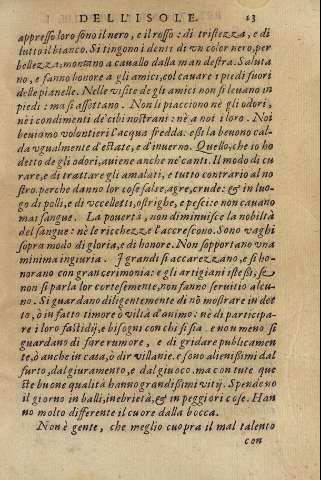 DELL'ISOLE. 23
appresso loro sono il nero, e il rosso: di tristezza, e di
tutto il bianco. Si tingono i denti di vn color nero, per
bellezza; montano a cauallo dalla man destra. Saluta
no, e fanno honore a gli amici, col cauare i piedi fuori
delle pianelle. Nelle visite de gli amici non si leuano in
piedi: ma si assettano. Non li piacciono nè gli odori,
nè i condimenti de' cibi nostrani: nè a noi i loro. Noi
beuiamo volontieri l'acqua fredda: eßi la beuono cal-
da vgualmente d'estate, e d'inuerno. Quello, che io ho
detto de gli odori, auiene anche ne' canti. Il modo di cu
rare, e di trattare gli amalati, e tutto contrario al no
stro. perche danno lor cose salse, agre, crude: & in luo-
go di polli, e di vccelletti, ostrighe, e pesci: e non cauano
mai sangue. La pouertà, non diminuisce la nobiltà
del sangue: nè le ricchezze l'accrescono. Sono vaghi
sopra modo di gloria, e di honore. Non sopportano vna
minima ingiuria. I grandi si accarezzano, e si ho-
norano con gran cerimonia: e gli artigiani isteßi, se
non si parla lor cortesemente, non fanno seruitio alcu-
no. Si guardano diligentemente di nõ mostrare in det
to, ò in fatto timore ò viltà d'animo: nè di participa-
re i loro fastidij, e bisogni con chi si sia. e non meno si
guardano di fare rumore, e di gridare publicamen
te, ò anche in casa, ò dir villanie. e sono alienißimi dal
furto, dal giuramento, e dal giuoco. ma con tute que
ste buone qualità hanno grandißimi vitij. Spendono
il giorno in balli, inebrietà, & in peggiori cose. Han
no molto differente il cuore dalla bocca.
Non è gente, che meglio cuopra il mal talento
con